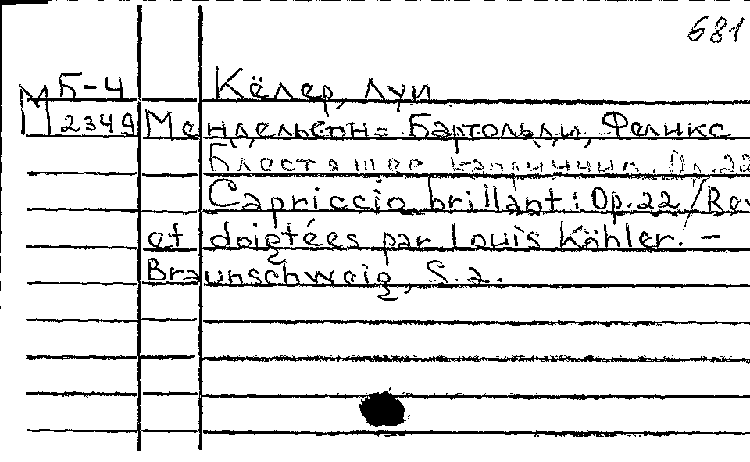 681
Б-4 Кёлер, Луи
М 2349 Мендельсон-Бартольди, Феликс
Блестящее каприччио. Op.22
Capriccio brillant: Op.22/Rev
et doigtées par Louis Köhler. -
Braunschweig, S.a.